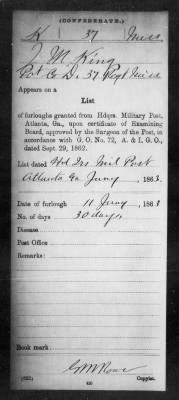 (CONFEDERATE.)
K 37 Miss
J M King
Pvt Co D, 37 Regt Miss
Appears on a
List
of furloughs granted from Hdqrs. Military Post,
Atlanta, Ga., upon certificate of Examining
Board, approved by the Surgeon of the Post, in
accordance with G. O. No. 72, A. & I. G. O.,
dated Sept. 29, 1862.
List dated Hd Qrs Mil Post
Atlanta Ga Juny , 1863.
Date of furlough 11 Juny , 1863
No. of days 30 days
Disease
Post Office
Remarks:
Book mark
G M Rowe
Copyist.